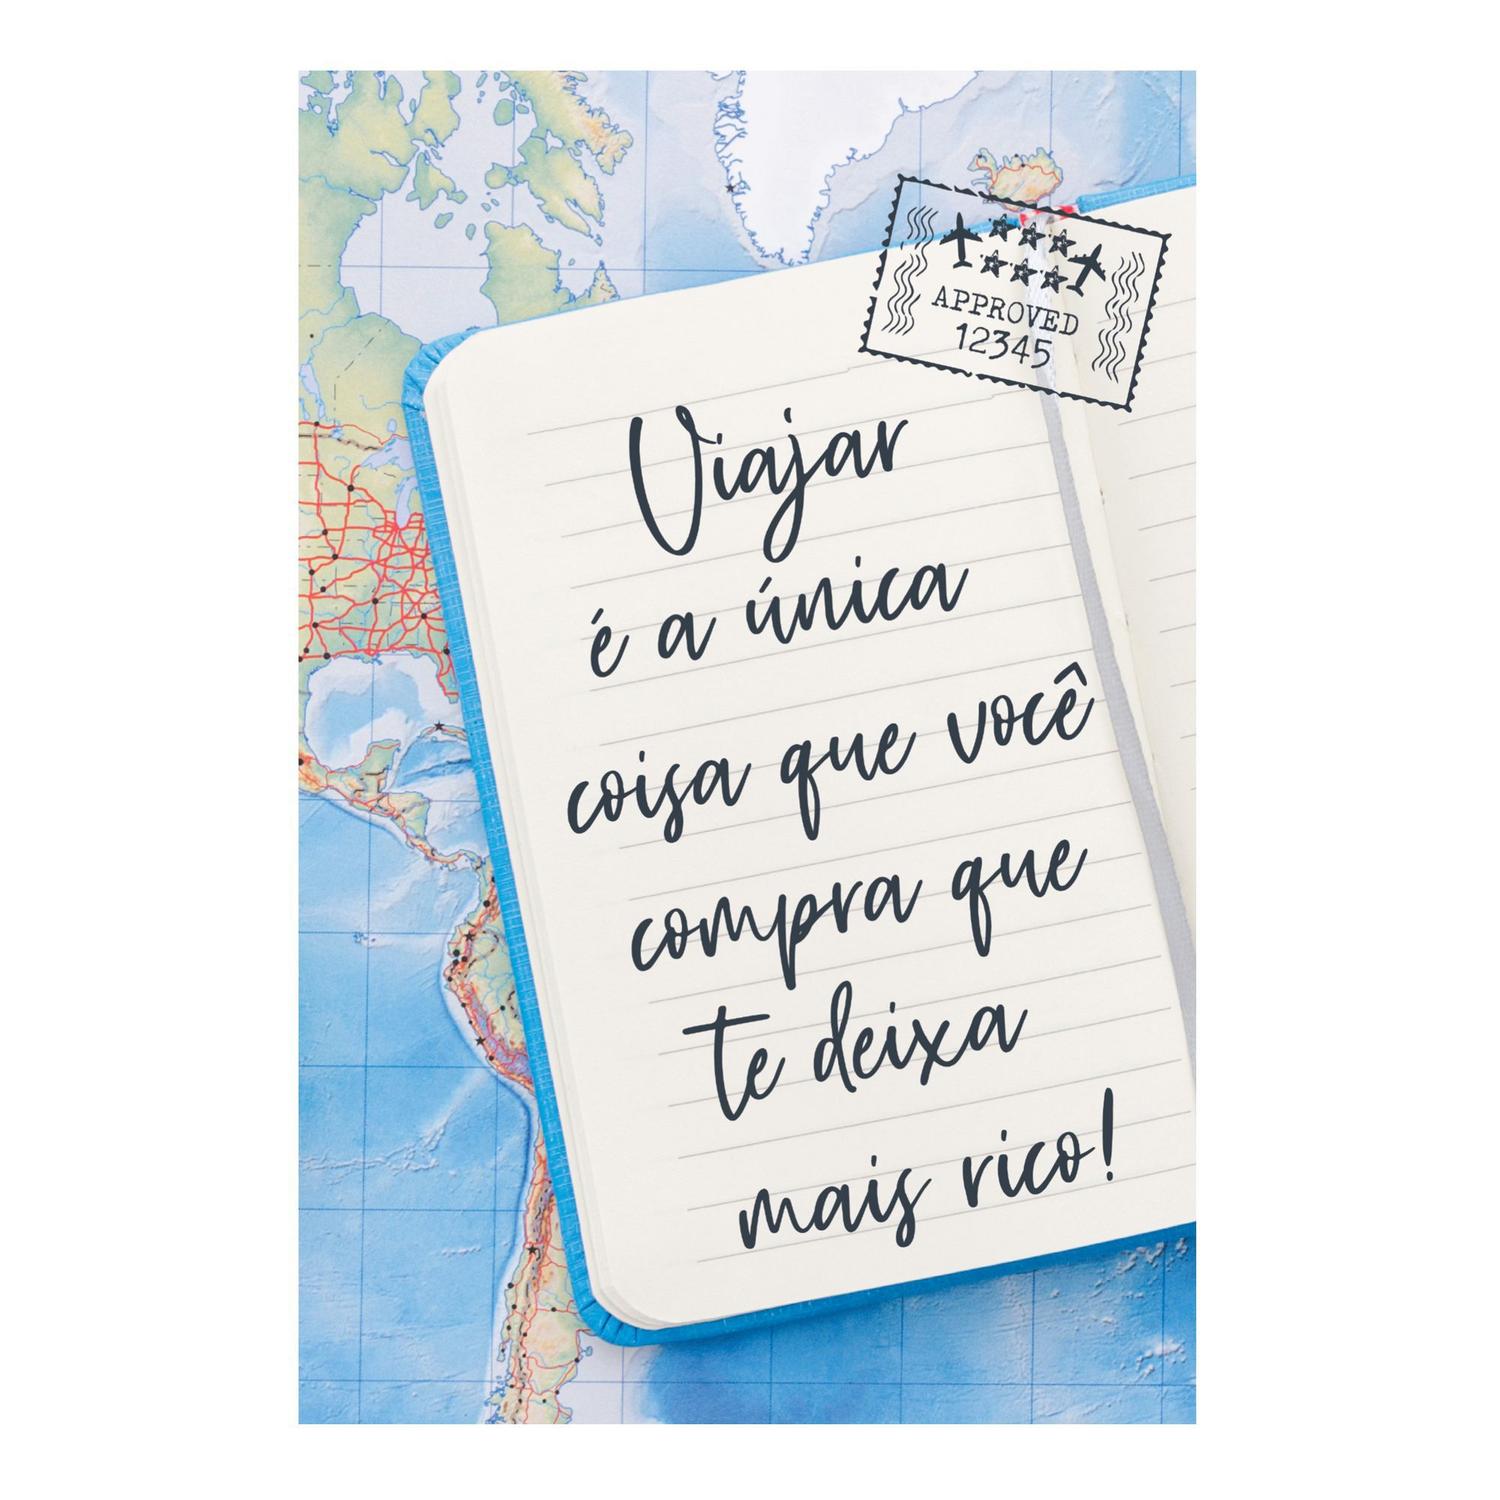 APPROVED
12345
Viajar
é a única
coisa que você
compra que
te deixa
mais rico!